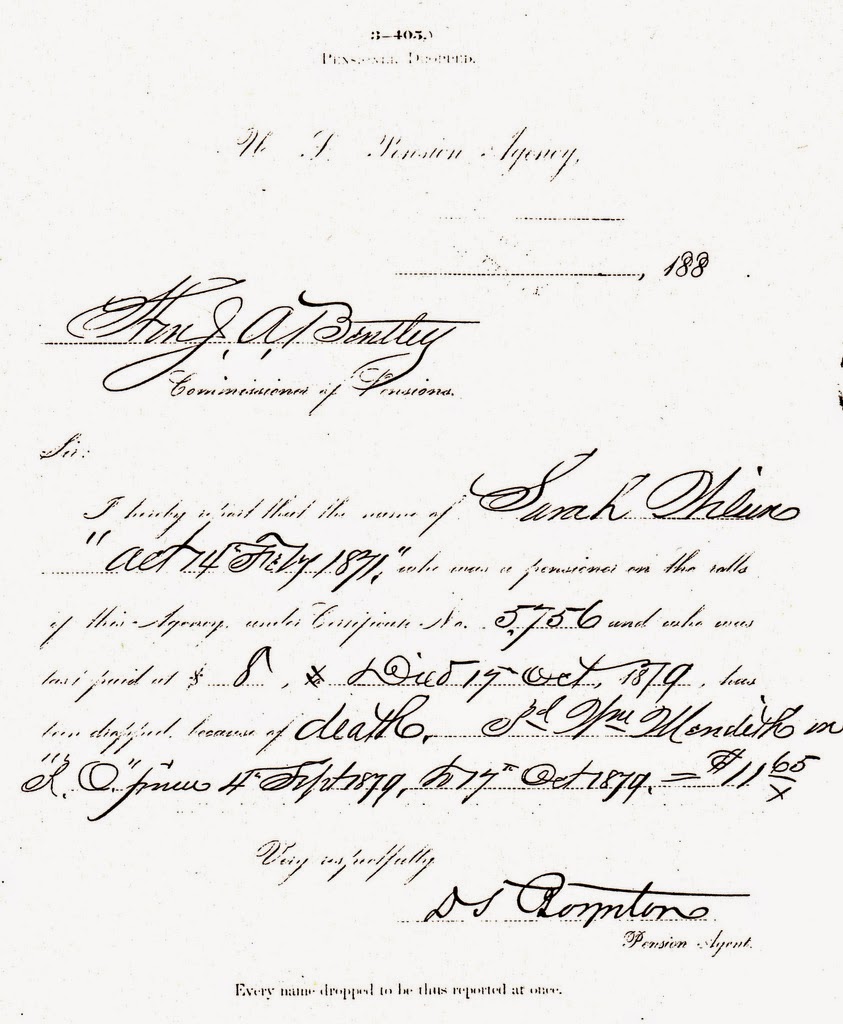 3-405.)
PENSIONER DROPPED.
U. S. Pension Agency,
, 188
Hon J. A. Bentley
Commissioner of Pensions.
Sir:
I hereby report that the name of Sarah
"act 14th Feb'y 1871," who was a pensioner on the rolls
of this Agency under Certificate No. 5,756 and who was
last paid at $ 8, Died 17th Oct, 1879, has
been dropped because of death. Pd Wm Meredith in
" " from 4th Sept 1879, to 17th Oct 1879. = $11 65/x
Very respectfully
D S Boynton
Pension Agent.
Every name dropped to be thus reported at once.